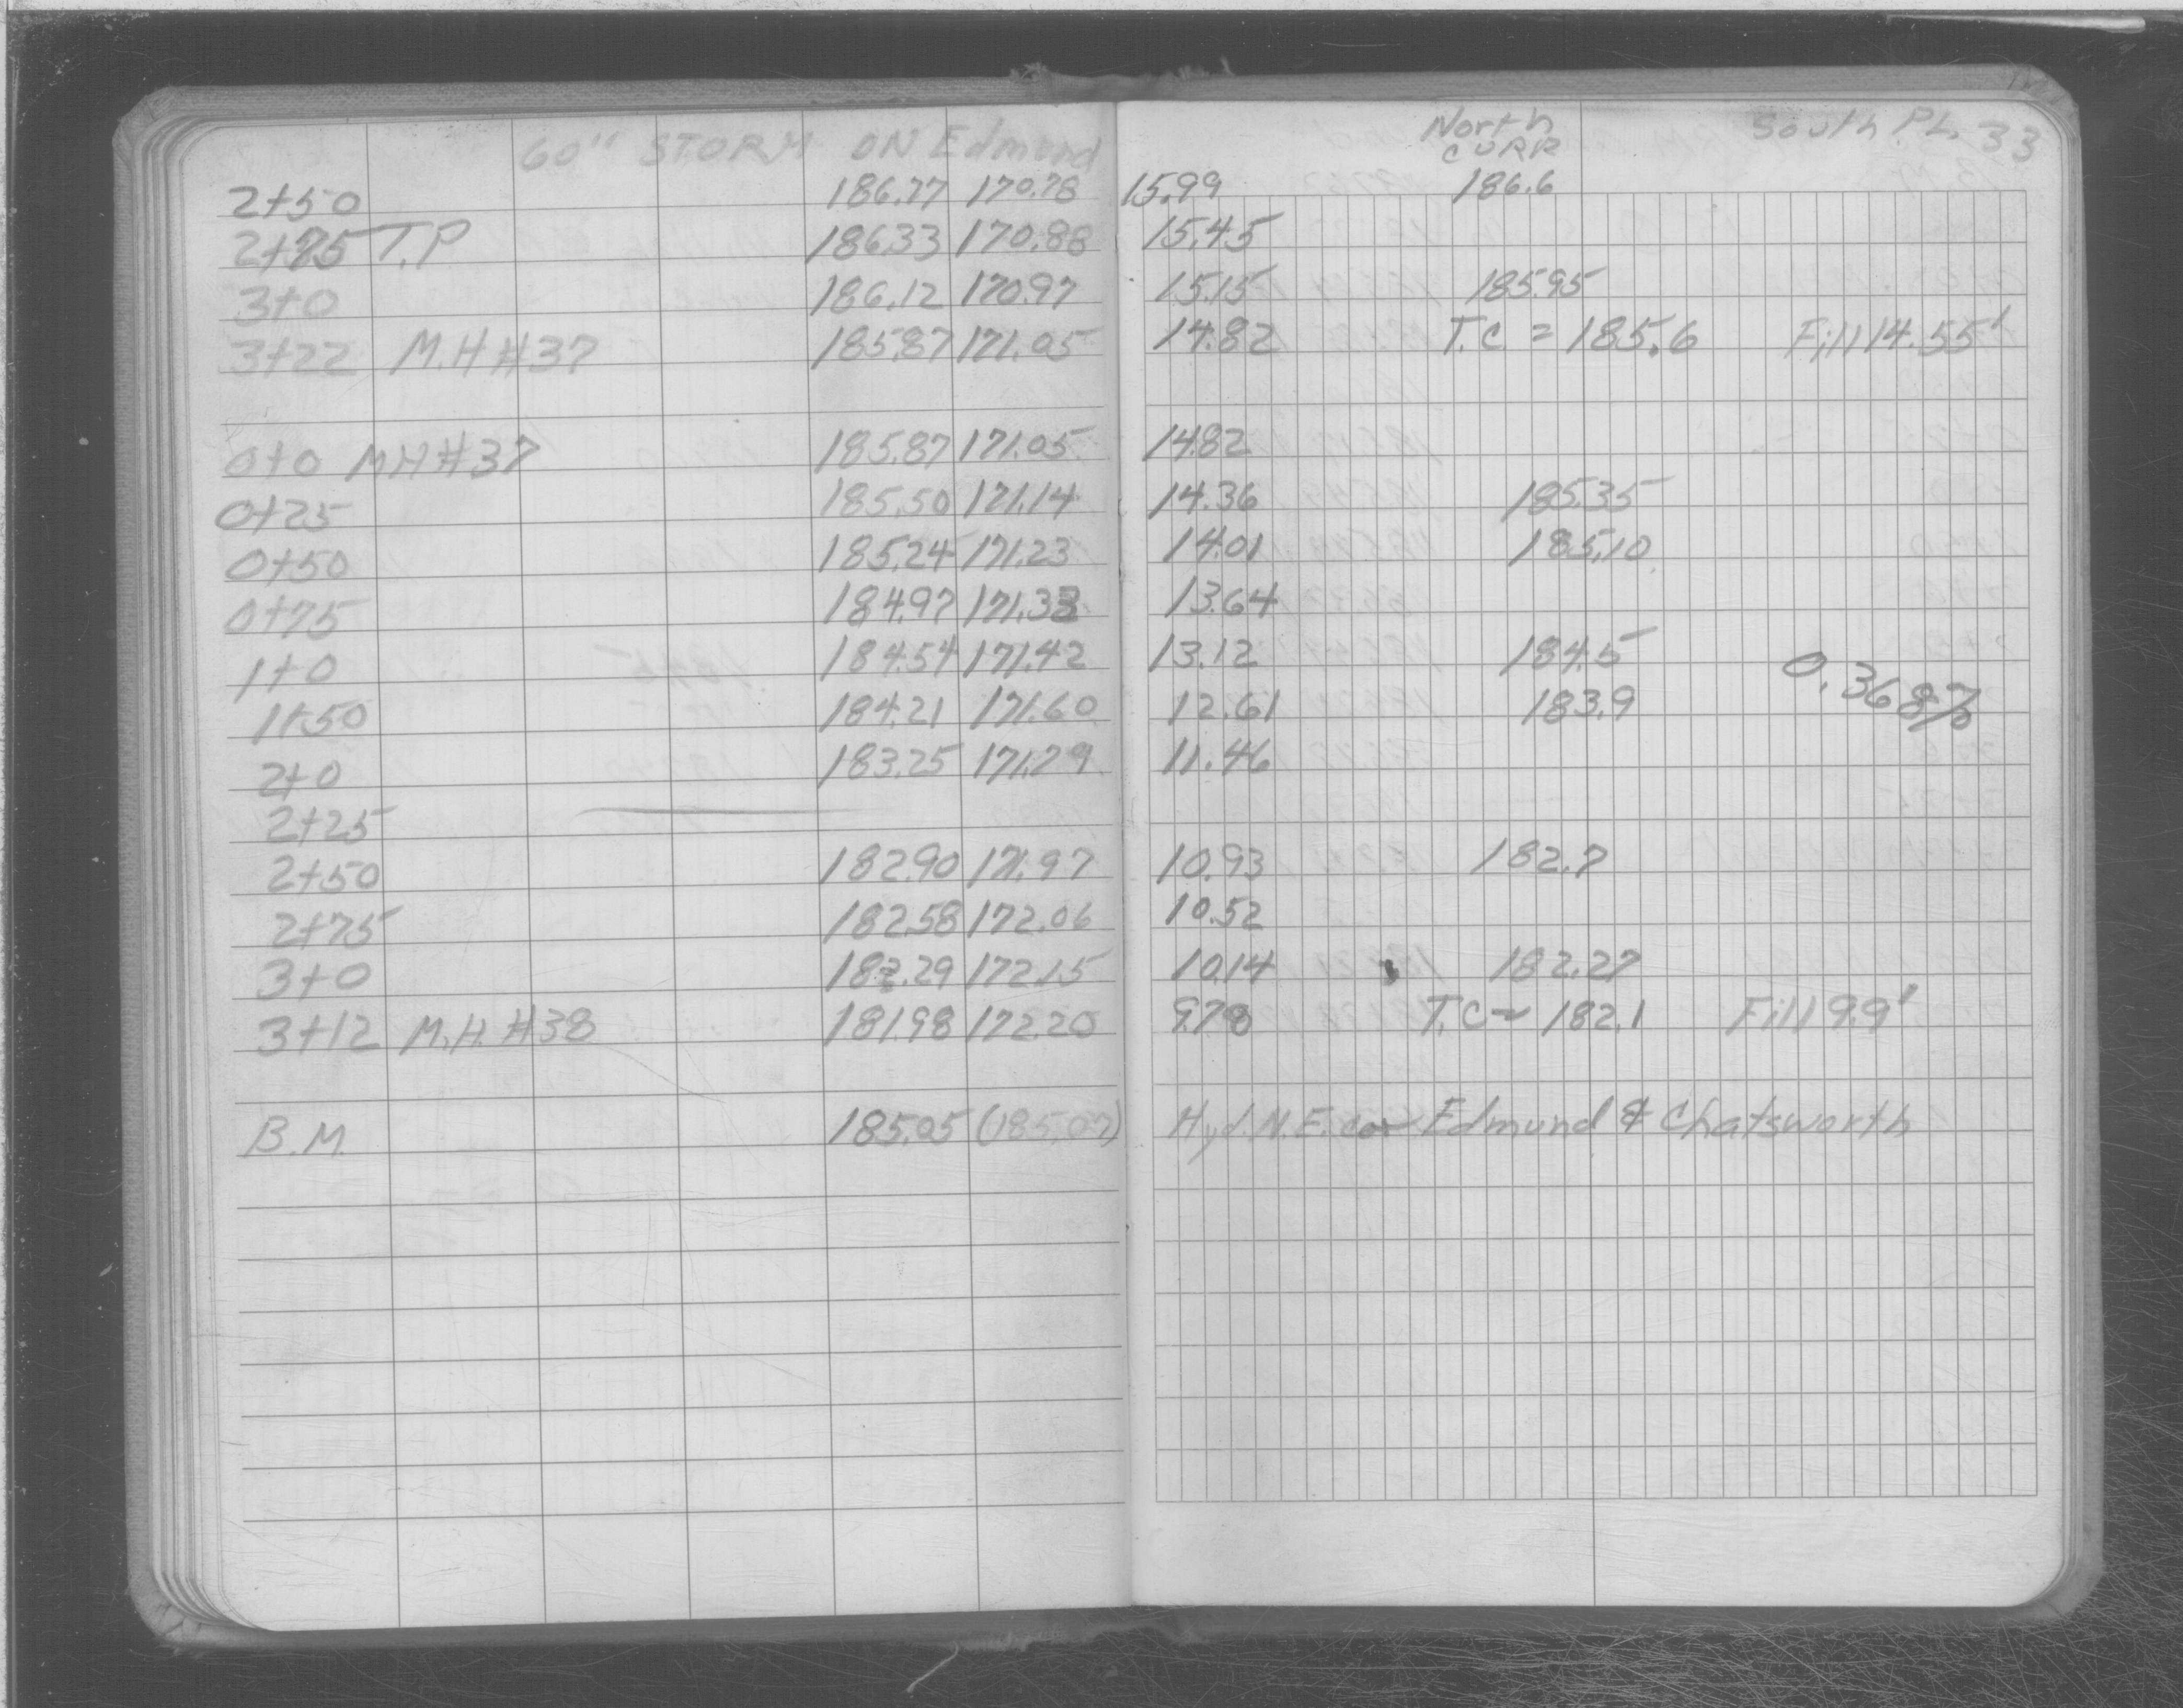 60" STORM ON Edmund North South P.L. 33
CURB
2+50 186.77 170.78 15.99 186.6
2+75 T.P 186.33 170.88 15.45
3+0 186.12 170.97 15.15 185.95
3+22 M.H #37 185.87 171.05 14.82 T.C. = 185.6 Fill 14.55'
0+0 MH #37 185.87 171.05 14.82
0+25 185.50 171.14 14.36 185.35
0+50 185.24 171.23 14.01 185.10
0+75 184.97 171.33 13.64
1+0 184.54 171.42 13.12 184.5 0.368%
1+50 184.21 171.60 12.61 183.9
2+0 183.25 171.79 11.46
2+25
2+50 182.90 171.97 10.93 182.7
2+75 182.58 172.06 10.52
3+0 182.29 172.15 10.14 182.27
3+12 M.H. #38 181.98 172.20 9.78 T.C = 182.1 Fill 9.9'
B.M. 185.05 (185.07) Hyd. N.E. cor Edmund & Chatsworth